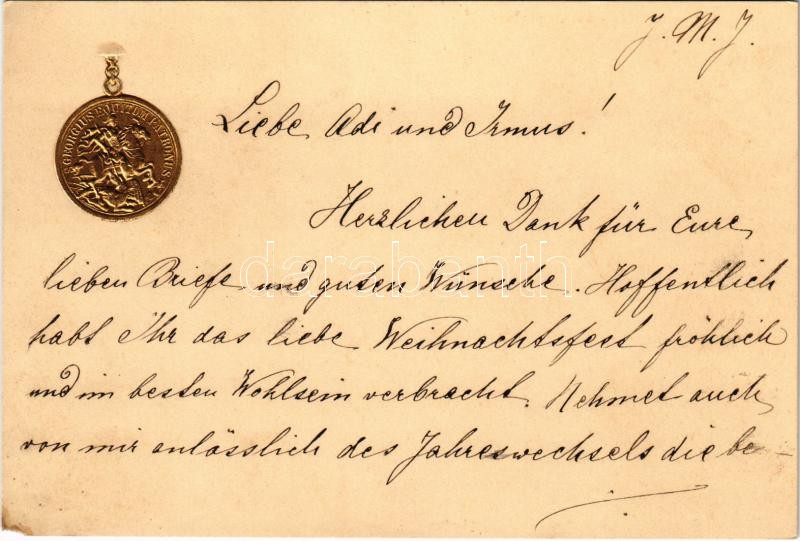 J. M. J.
S. GEORGIUS EQUITUM PATRONUS
Liebe Adi und Irmus!
Herzlichen Dank für Eure
lieben Briefe und guten Wünsche. Hoffentlich
habt Ihr das liebe Weihnachtsfest fröhlich
und im besten Wohlsein verbracht. Nehmet auch
von mir anlässlich des Jahreswechsels die be-
darabanth